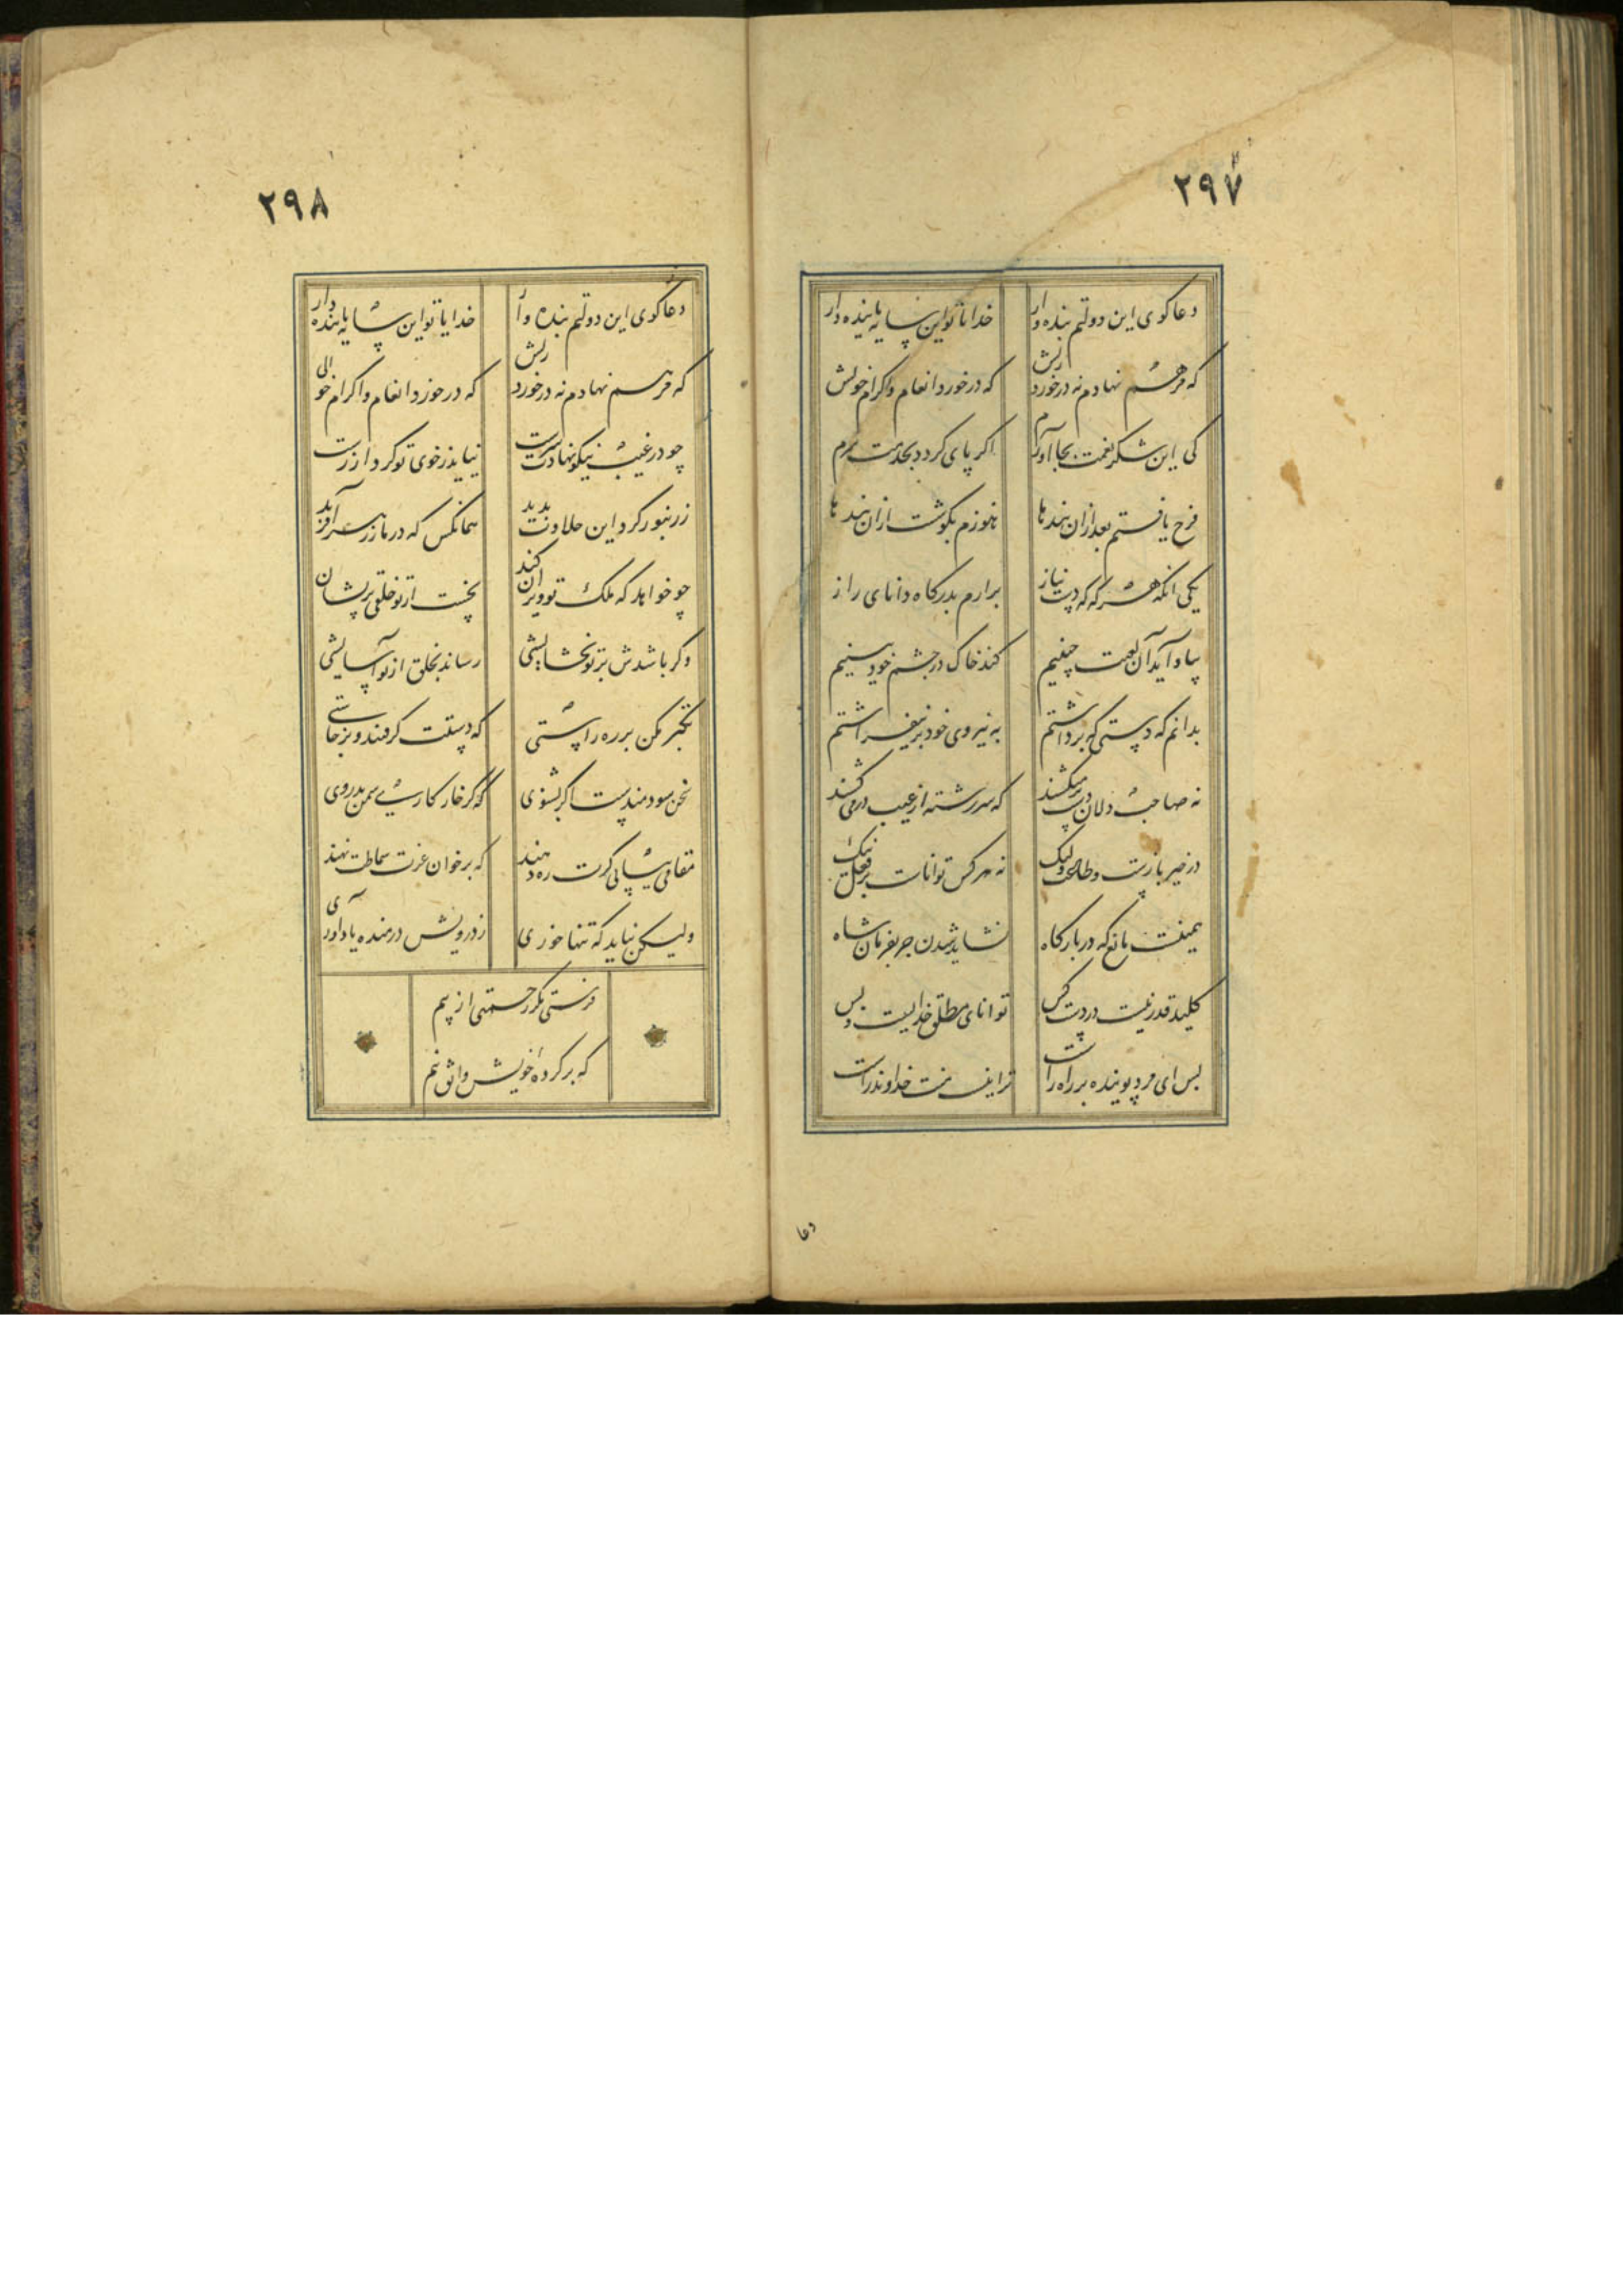 ۲۹۷
دعاکوی این دولتم بنده وار خدایا تو این سایه پاینده دار
که مرهم نهادم نه درخورد ریش که درخورد انعام و اکرام خویش
کی این شکر نعمت بجا آورم اکر پای کردد بخدمت سرم
فرح یافتم بعد ازان بندها هنوزم بکوشت ازان پندها
یکی انکه هر که که دست نیاز برارم بدرکاه دانای راز
بیاد آید آن لعبت چینیم کند خاک در چشم خود بینیم
بدانم که دستی که برداشتم به نیروی خود بر نیفراشتم
نه صاحب دلان دست بر میکشند که سررشته از غیب در می کشند
در خیر بازست و طاعت ولیک نه هر کس تواناست بر فعل نیک
همینست مانع که در بارکاه نشاید شدن جز بفرمان شاه
کلید قدر نیست در دست کس توانای مطلق خدایست و بس
پس ای مرد پوینده بر راه راست ترا نیست منت خداوندراست
دعا
۲۹۸
دعاکوی این دولتم بنده وار خدایا تو این سایه پاینده دار
که مرهم نهادم نه درخورد ریش که درخورد انعام و اکرام
چو در غیب نیکو نهادت سرشت نیاید ز خوی تو کردار زشت
ز زنبور کرد این حلاوت پدید همانکس که در مار زهر آفرید
چو خواهد که ملک تو ویران کند نخست از تو خلقی پریشان
وکر باشدش بر تو بخشایشی رساند بخلق از تو آسایشی
تکبر مکن بر ره راستی که دستت کرفتند و برخاستی
سخن سودمندست اکر بشنوی که کر خار کاری سمن ندروی
مقامی بیابی کرت ره دهند که بر خوان عزت سماطت نهند
ولیکن نباید که تنها خوری ز درویش درمنده یاد آوری
فرستی مکر رحمتی از پیم
که بر کردهٔ خویش واثق نیم